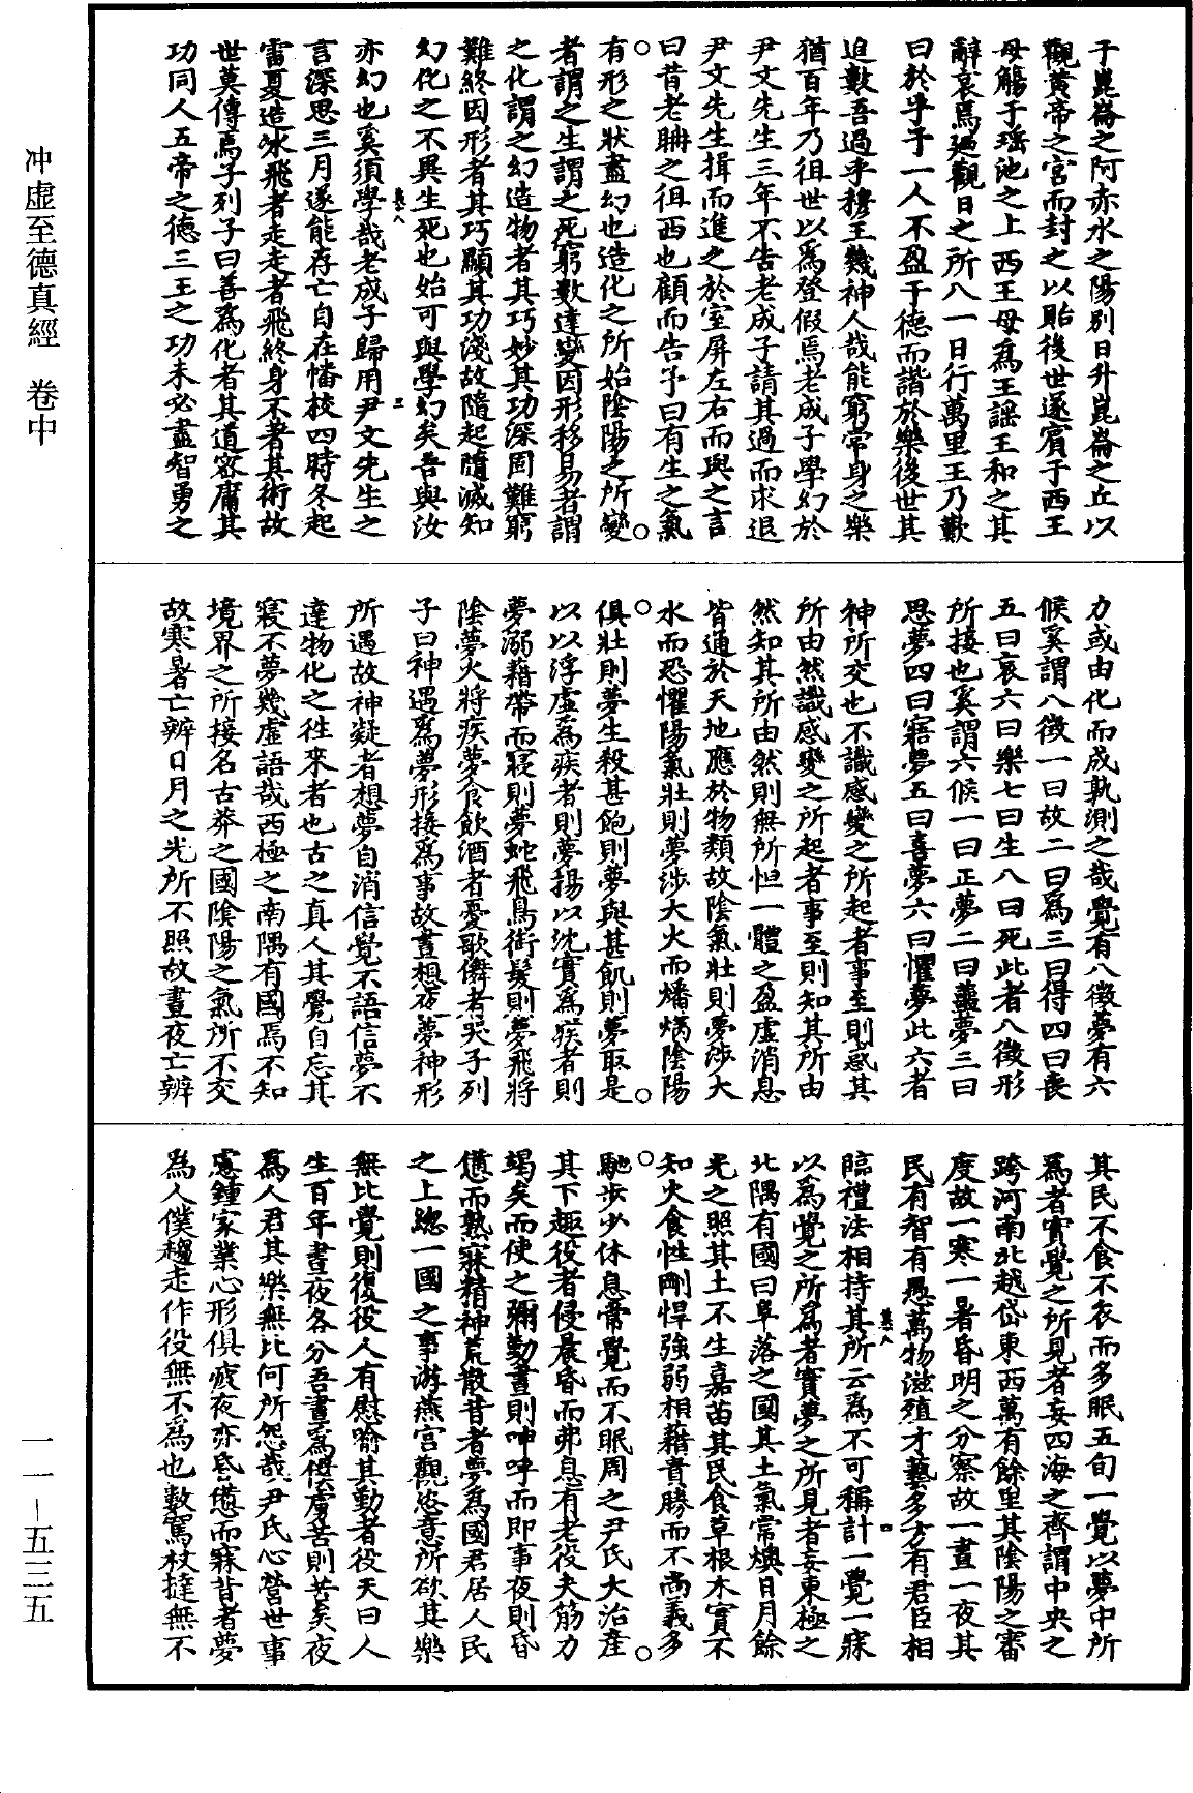 于崑崙之阿赤水之陽別日升崑崙之丘以
觀黃帝之宮而封之以貽後世遂賓于西王
母觴于瑶池之上西王母為王謡王和之其
辭哀焉廼觀日之所入一日行萬里王乃歎
曰於乎予一人不盈于德而諧於樂後世其
追數吾過乎穆王幾神人哉能窮當身之樂
猶百年乃徂世以為登假焉老成子學幻於
尹文先生三年不告老成子請其過而求退
尹文先生揖而進之於室屏左右而與之言
曰昔老聃之徂西也顧而告予曰有生之氣
有形之狀盡幻也造化之所始陰陽之所變
者謂之生謂之死窮數達變因形移易者謂
之化謂之幻造物者其巧妙其功深固難窮
難終因形者其巧顯其功淺故隨起隨滅知
幻化之不異生死也始可與學幻矣吾與汝
亦幻也奚須學哉老成子歸用尹文先生之
言深思三月遂能存亡自在憣校四時冬起
雷夏造冰飛者走走者飛終身不者其術故
世莫傳焉子列子曰善為化者其道密庸其
功同人五帝之德三王之功未必盡智勇之
力或由化而成孰測之哉覺有八徵夢有六
候奚謂八徵一曰故二曰為三曰得四曰喪
五曰哀六曰樂七曰生八曰死此者八徵形
所接也奚謂六候一曰正夢二曰蘁夢三曰
思夢四曰寤夢五曰喜夢六曰懼夢此六者
神所交也不識感變之所起者事至則惑其
所由然識感變之所起者事至則知其所由
然知其所由然則無所怛一體之盈虛消息
皆通於天地應於物類故陰氣壯則夢涉大
水而恐懼陽氣壯則夢涉大火而燔焫陰陽
俱壯則夢生殺甚飽則夢與甚飢則夢取是
以以浮虛為疾者則夢揚以沈實為疾者則
夢溺藉帶而寢則夢蛇飛鳥銜髮則夢飛將
陰夢火將疾夢食飲酒者憂歌儛者哭子列
子曰神遇為夢形接為事故晝想夜夢神形
所遇故神凝者想夢自消信覺不語信夢不
達物化之往來者也古之真人其覺自忘其
寢不夢幾虛語哉西極之南隅有國焉不知
境界之所接名古莽之國陰陽之氣所不交
故寒暑亡辨日月之光所不照故晝夜亡辨
其民不食不衣而多眠五旬一覺以夢中所
為者實覺之所見者妄四海之齊謂中央之
跨河南北越岱東西萬有餘里其陰陽之審
度故一寒一暑昏明之分察故一晝一夜其
民有智有愚萬物滋殖才藝多方有君臣相
臨禮法相持其所云為不可稱計一覺一寐
以為覺之所為者實夢之所見者妄東極之
北隅有國曰阜落之國其土氣常燠日月餘
光之照其土不生嘉苗其民食草根木實不
知火食性剛悍強弱相藉貴勝而不尚義多
馳步少休息常覺而不眠周之尹氏大治產
其下趣役者侵晨昏而弗息有老役夫筋力
竭矣而使之彌勤晝則呻呼而即事夜則昏
憊而熟寐精神荒散昔昔夢為國君居人民
之上總一國之事游燕宫觀恣意所欲其樂
無比覺則復役人有慰喻其勤者役夫曰人
生百年晝夜各分吾晝為僕虜苦則苦矣夜
為人君其樂無比何所怨哉尹氏心營世事
慮鍾家業心形俱疲夜亦昏憊而寐昔昔夢
為人僕趨走作役無不為也數駡杖撻無不
冲虛至德真經　卷中
一一—五三五